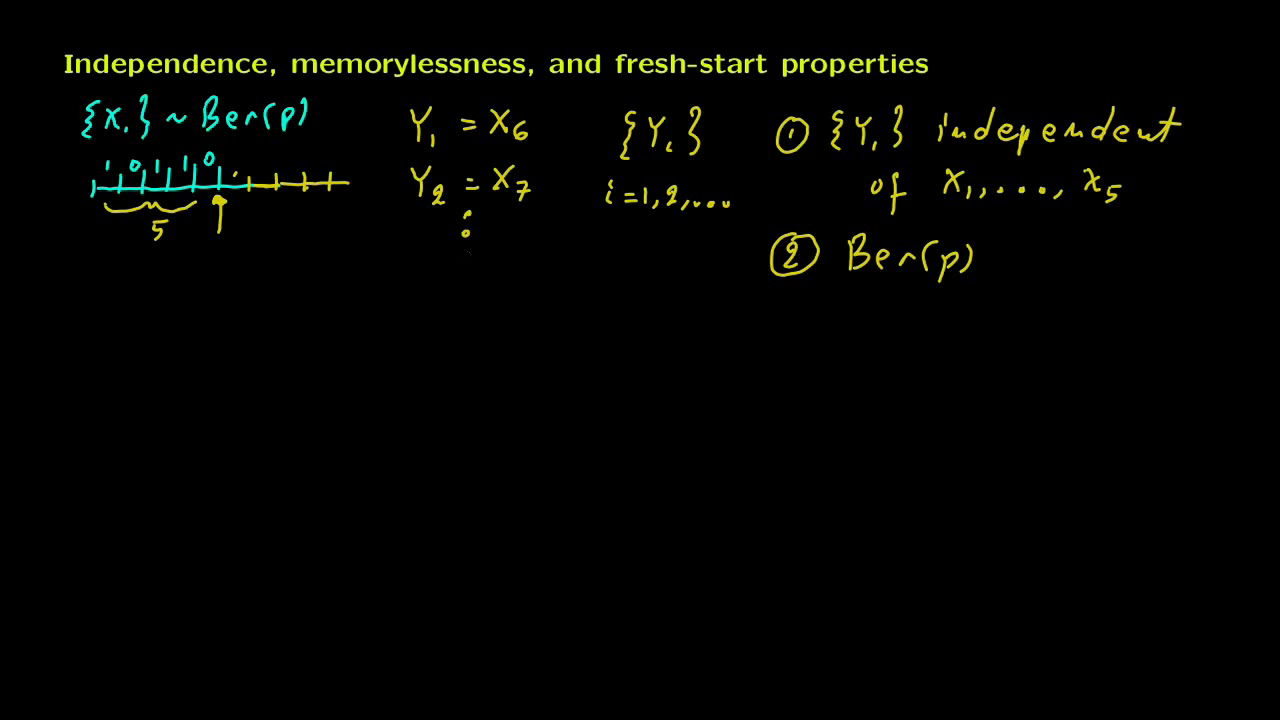 Independence, memorylessness, and fresh-start properties
{X_i} ~ Ber(p)
1 0 1 1 0
5
Y_1 = X_6
Y_2 = X_7
⋮
{Y_i}
i = 1, 2, ...
① {Y_i} independent
of X_1, ..., X_5
② Ber(p)